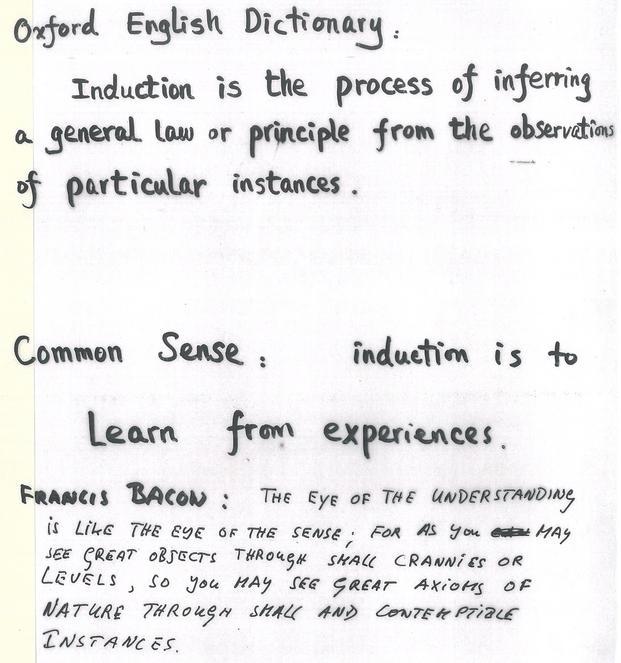 Oxford English Dictionary:
Induction is the process of inferring
a general law or principle from the observations
of particular instances.
Common Sense: induction is to
Learn from experiences.
FRANCIS BACON: THE EYE OF THE UNDERSTANDING
is LIKE THE EYE OF THE SENSE; FOR AS YOU MAY
SEE GREAT OBJECTS THROUGH SMALL CRANNIES OR
LEVELS, SO YOU MAY SEE GREAT AXIOMS OF
NATURE THROUGH SMALL AND CONTEMPTIBLE
INSTANCES.